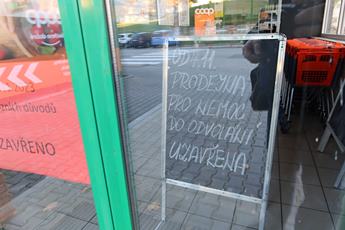 coop
OD 7.11.
PRODEJNA
PRO NEMOC
DO ODVOLÁNÍ
UZAVŘENA
důvodů
ZAVŘENO